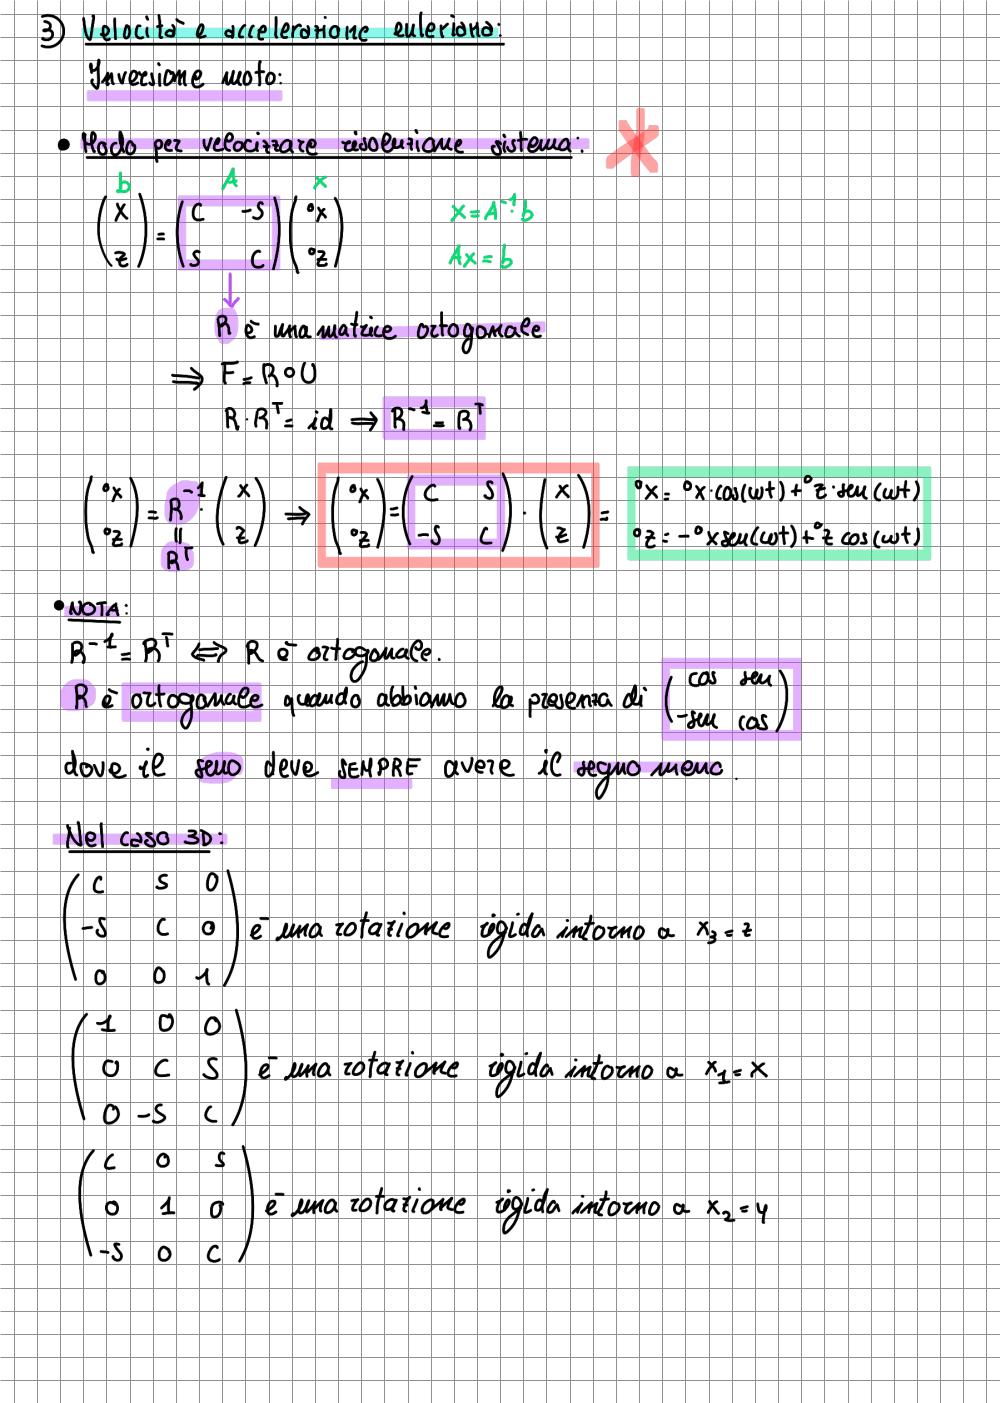 3) Velocità e accelerazione euleriana:
Inversione moto:
• Modo per velocizzare risoluzione sistema: *
b A x
(X Z) = (C -S S C) (°x °z)
X = A⁻¹·b
Ax = b
↓
R è una matrice ortogonale
⇒ F = R∘U
R·Rᵀ = id ⇒ R⁻¹ = Rᵀ
(°x °z) = R⁻¹ · (x z) ⇒ (°x °z) = (C S -S C) · (x z) =
°x = °x·cos(ωt) + °z·sen(ωt)
°z = -°x sen(ωt) + °z cos(ωt)
=
Rᵀ
• NOTA:
R⁻¹ = Rᵀ ⇔ R è ortogonale.
R è ortogonale quando abbiamo la presenza di (cos sen -sen cos)
dove il seno deve SEMPRE avere il segno meno.
Nel caso 3D:
C S 0
-S C 0 è una rotazione rigida intorno a x₃ = z
0 0 1
1 0 0
0 C S è una rotazione rigida intorno a x₁ = x
0 -S C
C 0 S
0 1 0 è una rotazione rigida intorno a x₂ = y
-S 0 C